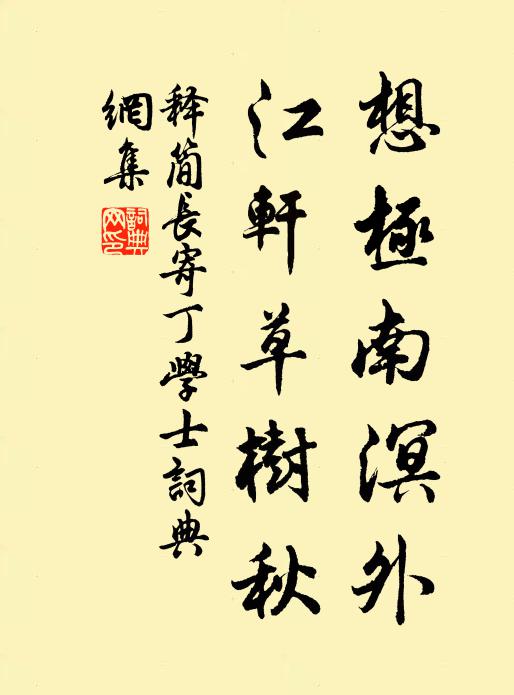 想極南溟外
江軒草樹秋
释簡長寄丁學士詞典
網集
詞典網印